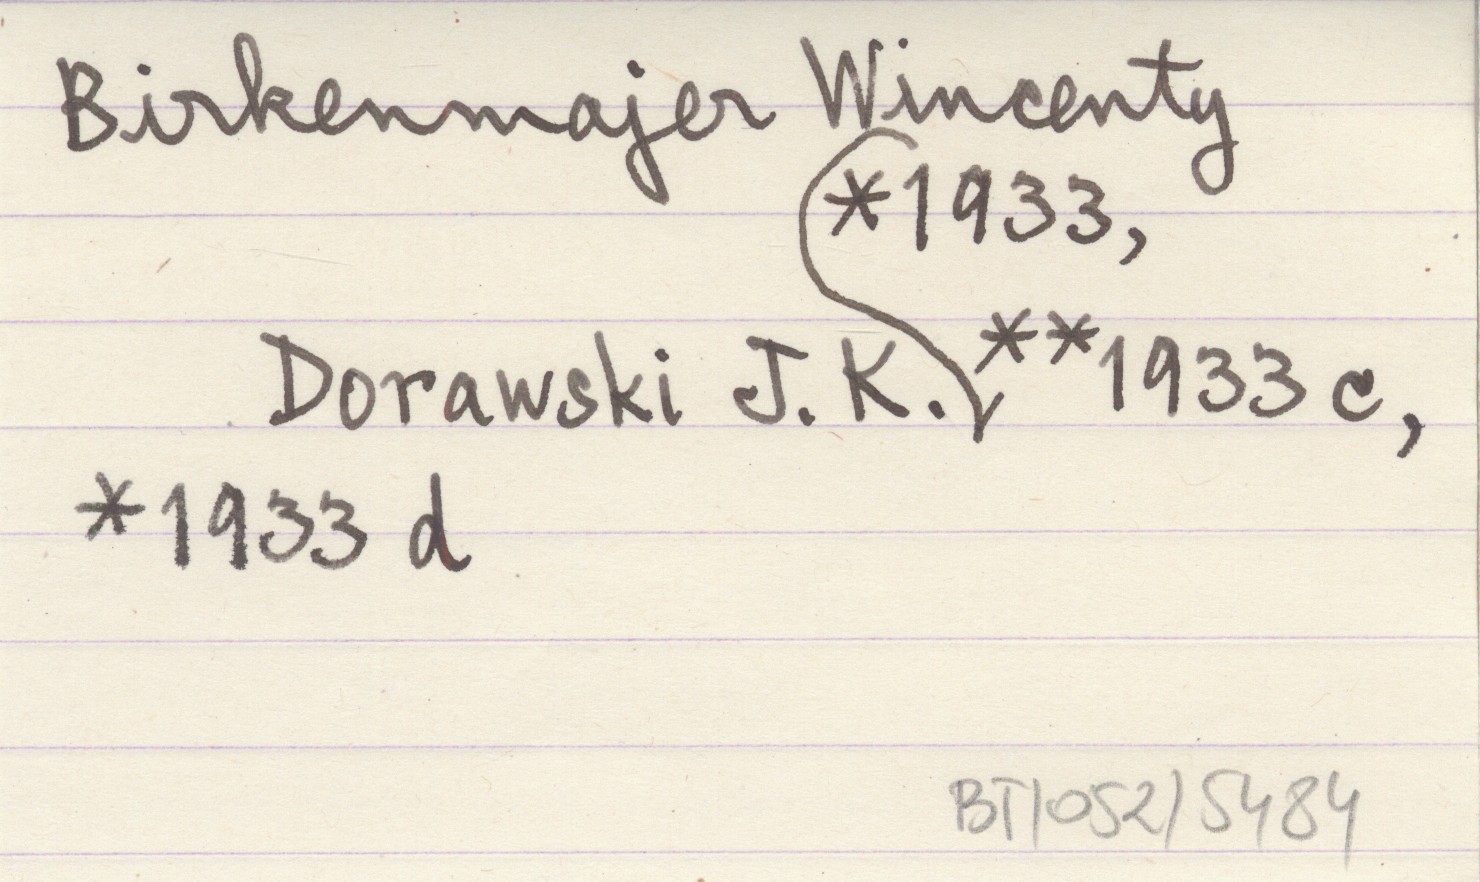 Birkenmajer Wincenty
*1933,
Dorawski J. K. **1933 c,
*1933 d
BT/052/5484